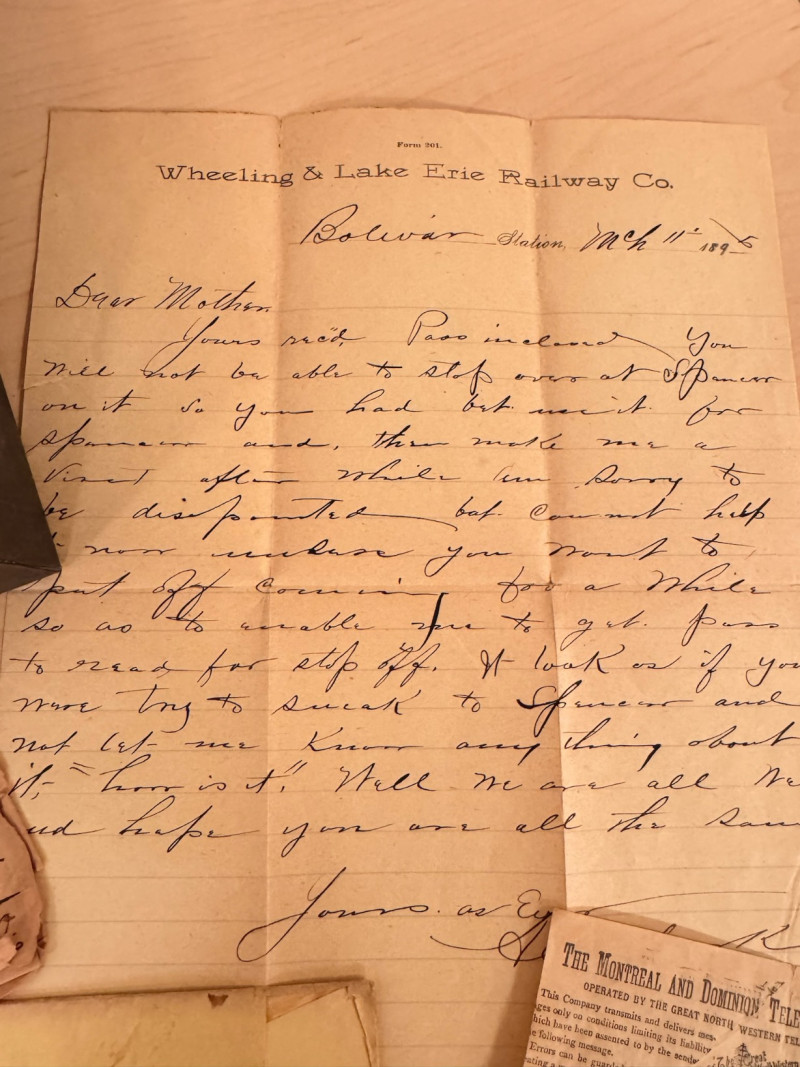 Form 201.
Wheeling & Lake Erie Railway Co.
Bolivar Station, Mch 11" 1895
Dear Mother
Yours rec'd. Pass inclosed You
will not be able to stop over at Spencer
on it so you had bet use it for
Spencer and, then make me a
visit after while am sorry to
be disapointed but can not help
now you want to
put off coming for a while
so as to enable me to get pass
to read for stop off. It look as if you
were tryg to sneak to Spencer and
not let me know any thing about
it, "how is it". Well we are all
hope you are all the
Yours as
THE MONTREAL AND DOMINION
OPERATED BY THE GREAT NORTH WESTERN
This Company transmits and delivers
only on conditions limiting its liability
have been assented to by the
following message.
Errors can be